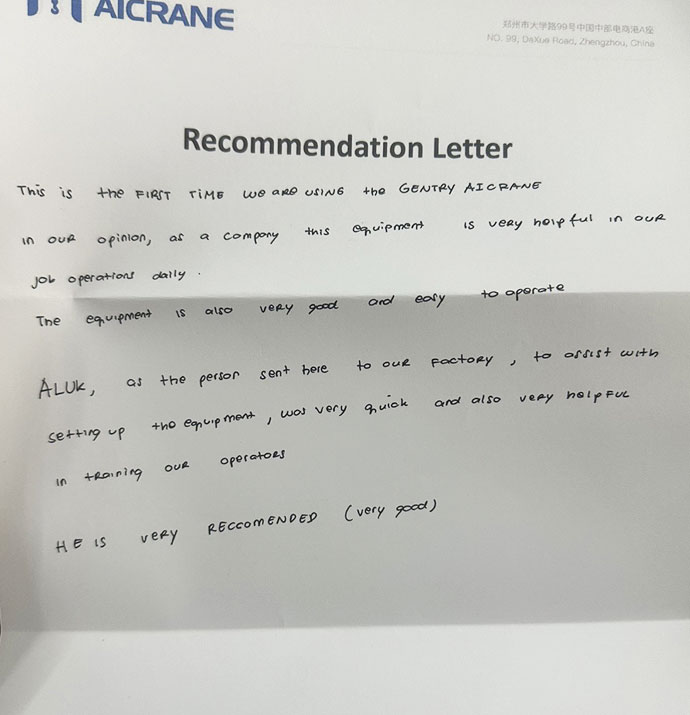 AICRANE
郑州市大学路99号中国中部电商港A座
NO. 99, DaXue Road, Zhengzhou, China
Recommendation Letter
This is the FIRST TIME WE ARE USING the GENTRY AICRANE
in our opinion, as a company this equipment is very helpful in our
job operations daily.
The equipment is also very good and easy to operate
ALUK, as the person sent here to our factory, to assist with
setting up the equipment, was very quick and also very helpful
in training our operators
HE IS very RECCOMENDED (very good)